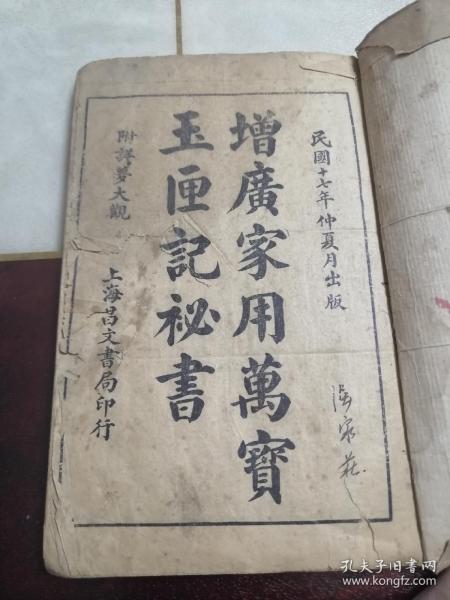 民國十七年仲夏月出版
增廣家用萬寶
玉匣記祕書
附詳夢大觀
上海昌文書局印行
孔夫子旧书网
www.kongfz.com